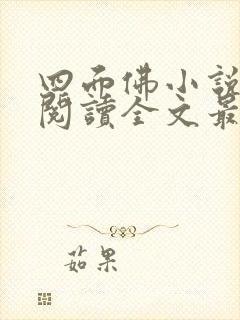 四面佛小說
閱讀全文最
茹果